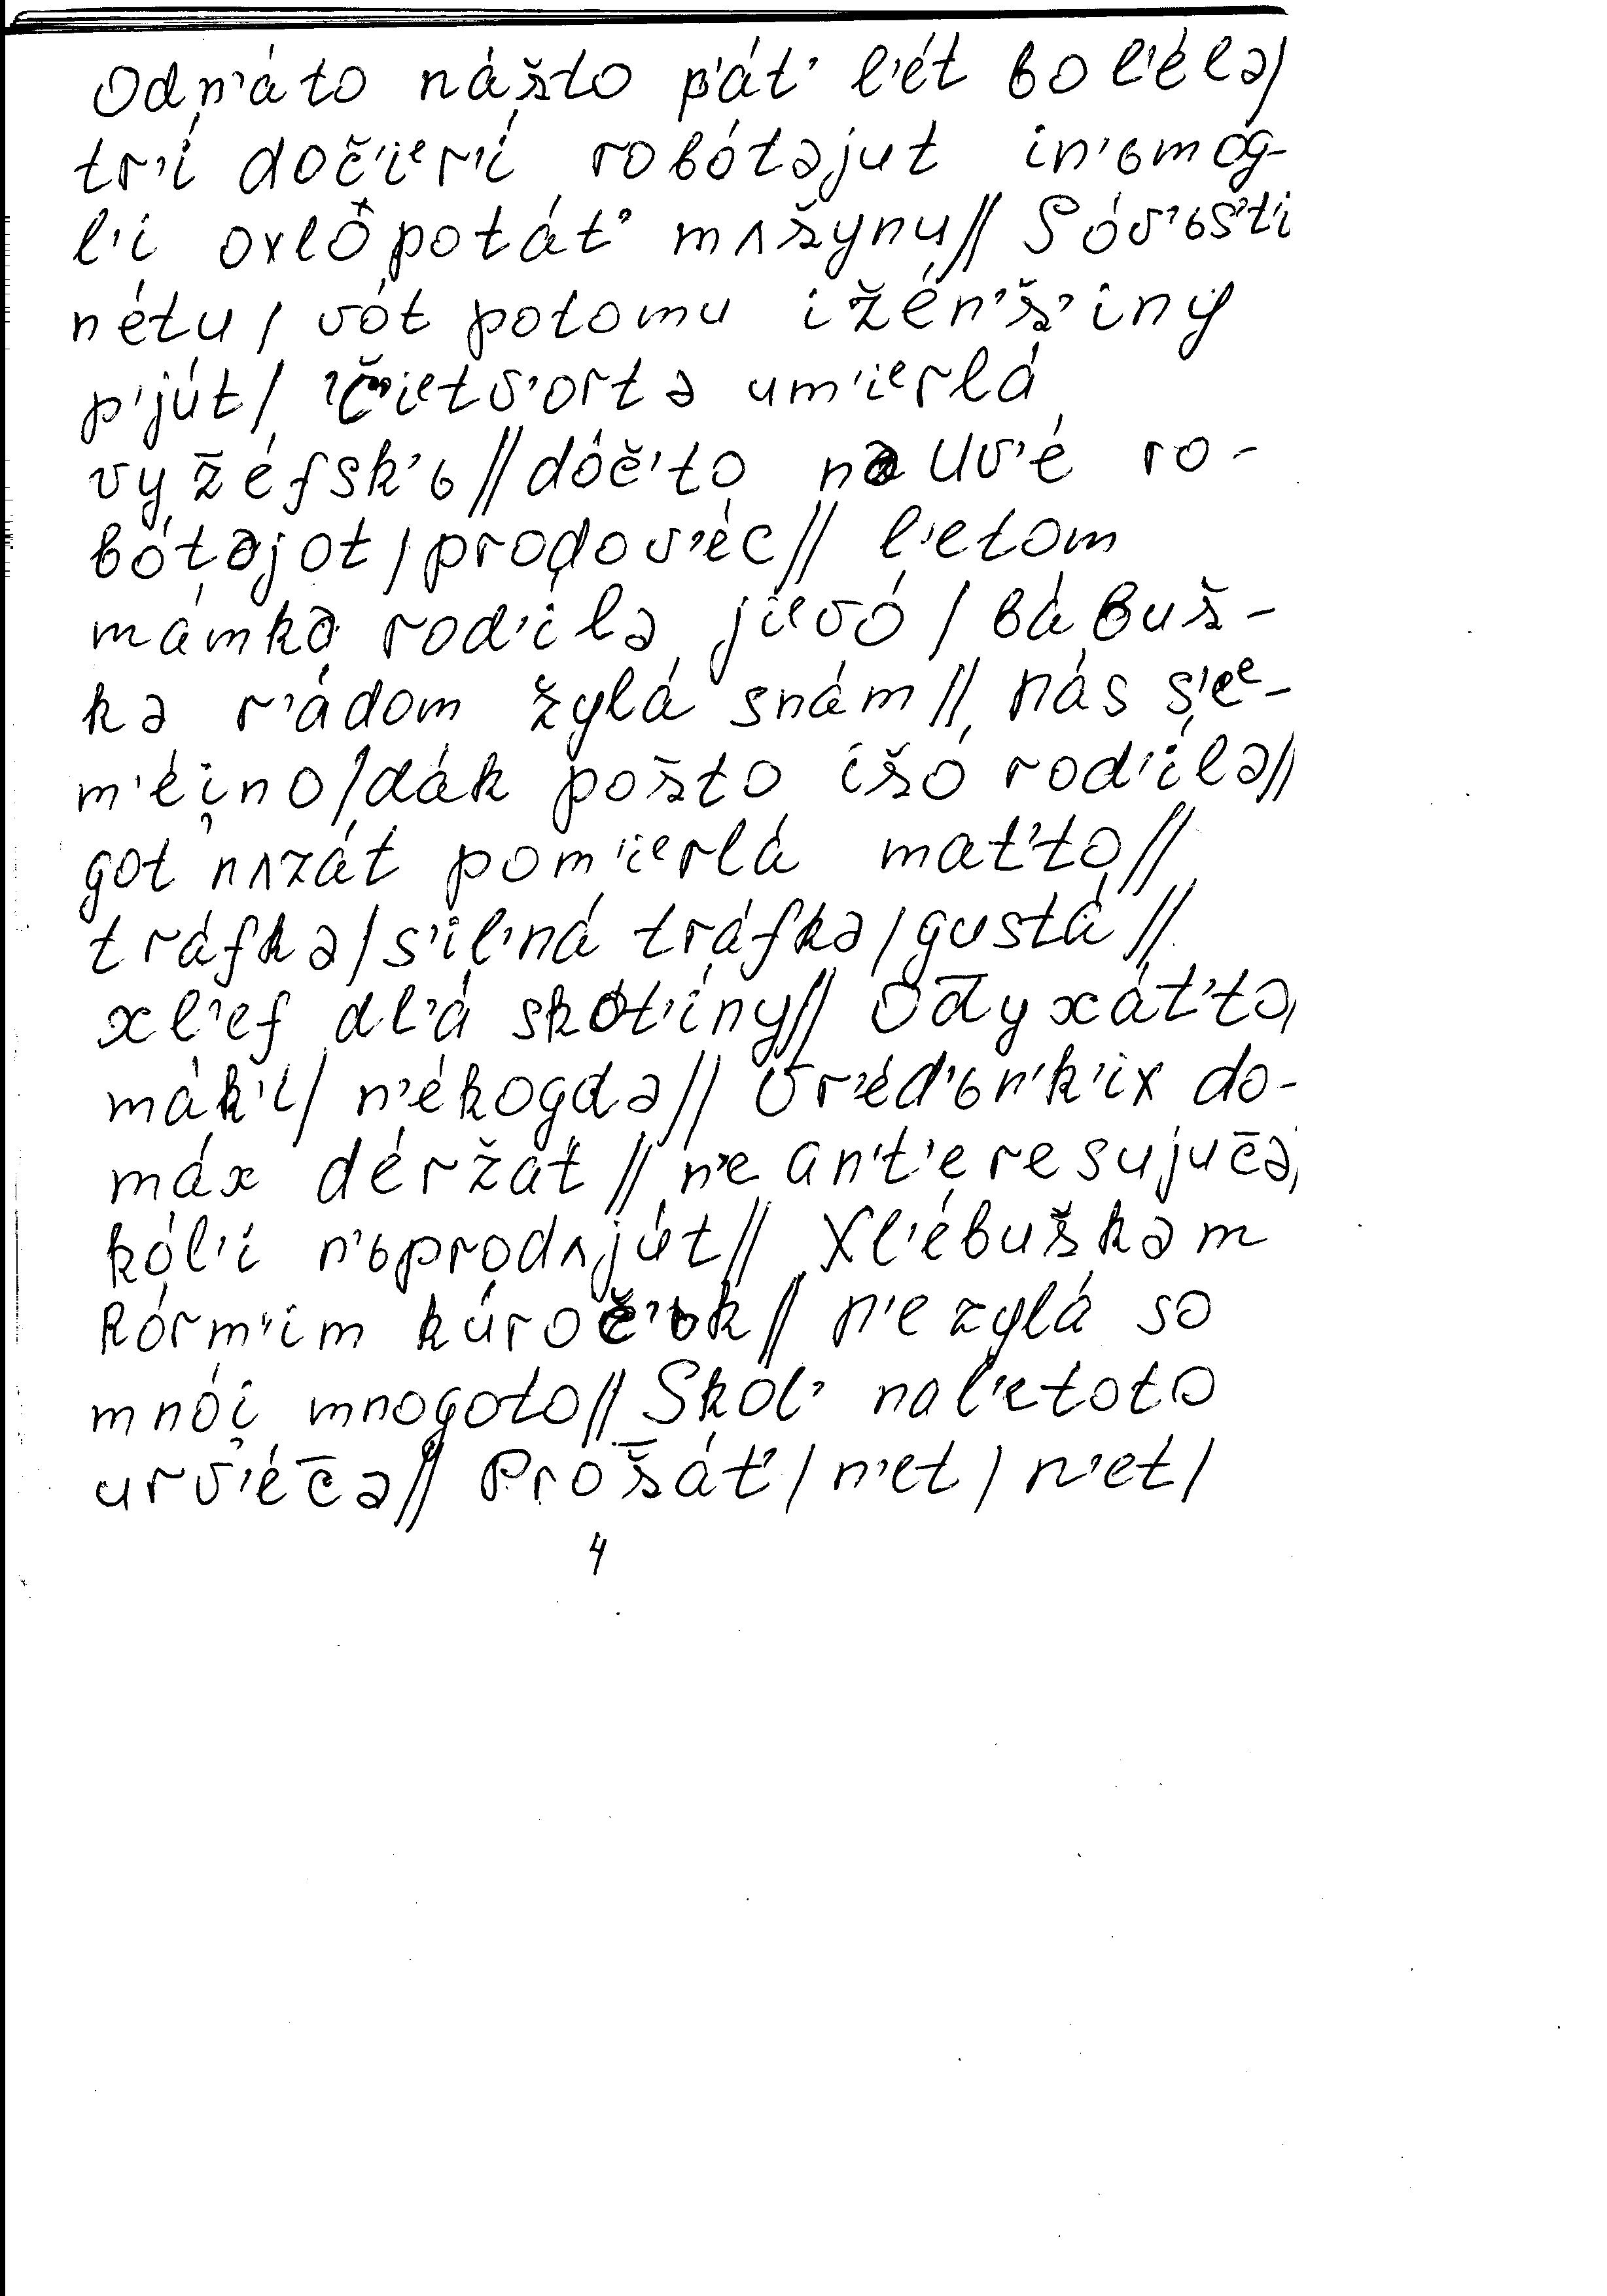 Odn'áto nášto p'át' l'ét bol'élə/
tr'í doč'iᵉr'í robótəjut in'ьmóg-
l'i oxlópotát' mʌšynu// Sóv'ьs't'i
nétu/ vót potomu i žén'š'iny
p'jút/ č'iᵉtv'ortə um'iᵉrlá
vyžéfsk'ь// dóč'to nəuv'é ro-
bótəjot/ prodov'éc// l'etom
mámkə rod'ílə jiᵉvó/ bábuš-
kə r'ádom žylá snám// nás s'eᵉ-
m'éi̯no/ dák pošto išó rod'ílə//
got nʌzát pom'iᵉrlá mat'to//
tráfkə/ s'il'ná tráfkə/ gustá//
xl'ef dl'á skot'íny// od̄yxát'to,
mák'i/ n'ékogdə// vr'éd'ьn'k'ix do-
máx déržat// n'e an't'eresujuc̄ə,
kól'i n'ьprodʌjút// Xl'ébuškəm
kórm'im kúroč'ьk// n'e zylá so
mnói̯ mnogoto// Skól' nal'etoto
urv'éc̄ə// Proš̄át'/ n'et/ n'et/
4